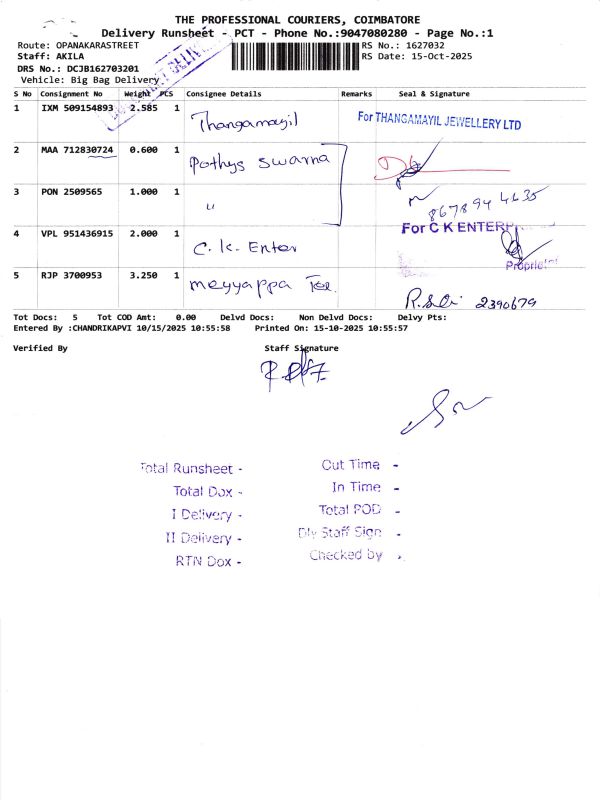 THE PROFESSIONAL COURIERS, COIMBATORE
Delivery Runsheet - PCT - Phone No.:9047080280 - Page No.:1
Route: OPANAKARASTREET RS No.: 1627032
Staff: AKILA RS Date: 15-Oct-2025
DRS No.: DCJB162703201
Vehicle: Big Bag Delivery
S No Consignment No Weight PCS Consignee Details Remarks Seal & Signature
1 IXM 509154893 2.585 1 Thangamayil For THANGAMAYIL JEWELLERY LTD
2 MAA 712830724 0.600 1 Pothys Swarna
3 PON 2509565 1.000 1 " 867894 4635
For C K ENTERPR
4 VPL 951436915 2.000 1 C. K. Enter
Proprietor
5 RJP 3700953 3.250 1 meyyappa Tex.
2390679
Tot Docs: 5 Tot COD Amt: 0.00 Delvd Docs: Non Delvd Docs: Delvy Pts:
Entered By :CHANDRIKAPVI 10/15/2025 10:55:58 Printed On: 15-10-2025 10:55:57
Verified By Staff Signature
Total Runsheet - Cut Time -
Total Dox - In Time -
I Delivery - Total POD -
II Delivery - Dly Staff Sign -
RTN Dox - Checked by -